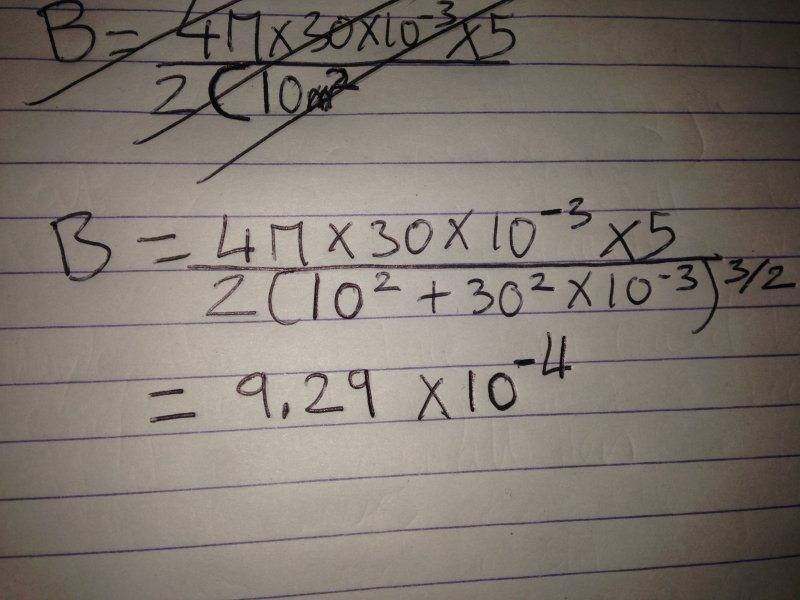 B = 4π×30×10⁻³×5
2 (10
B = 4π × 30 × 10⁻³ × 5
2 (10² + 30² × 10⁻³)^3/2
= 9.29 × 10⁻⁴